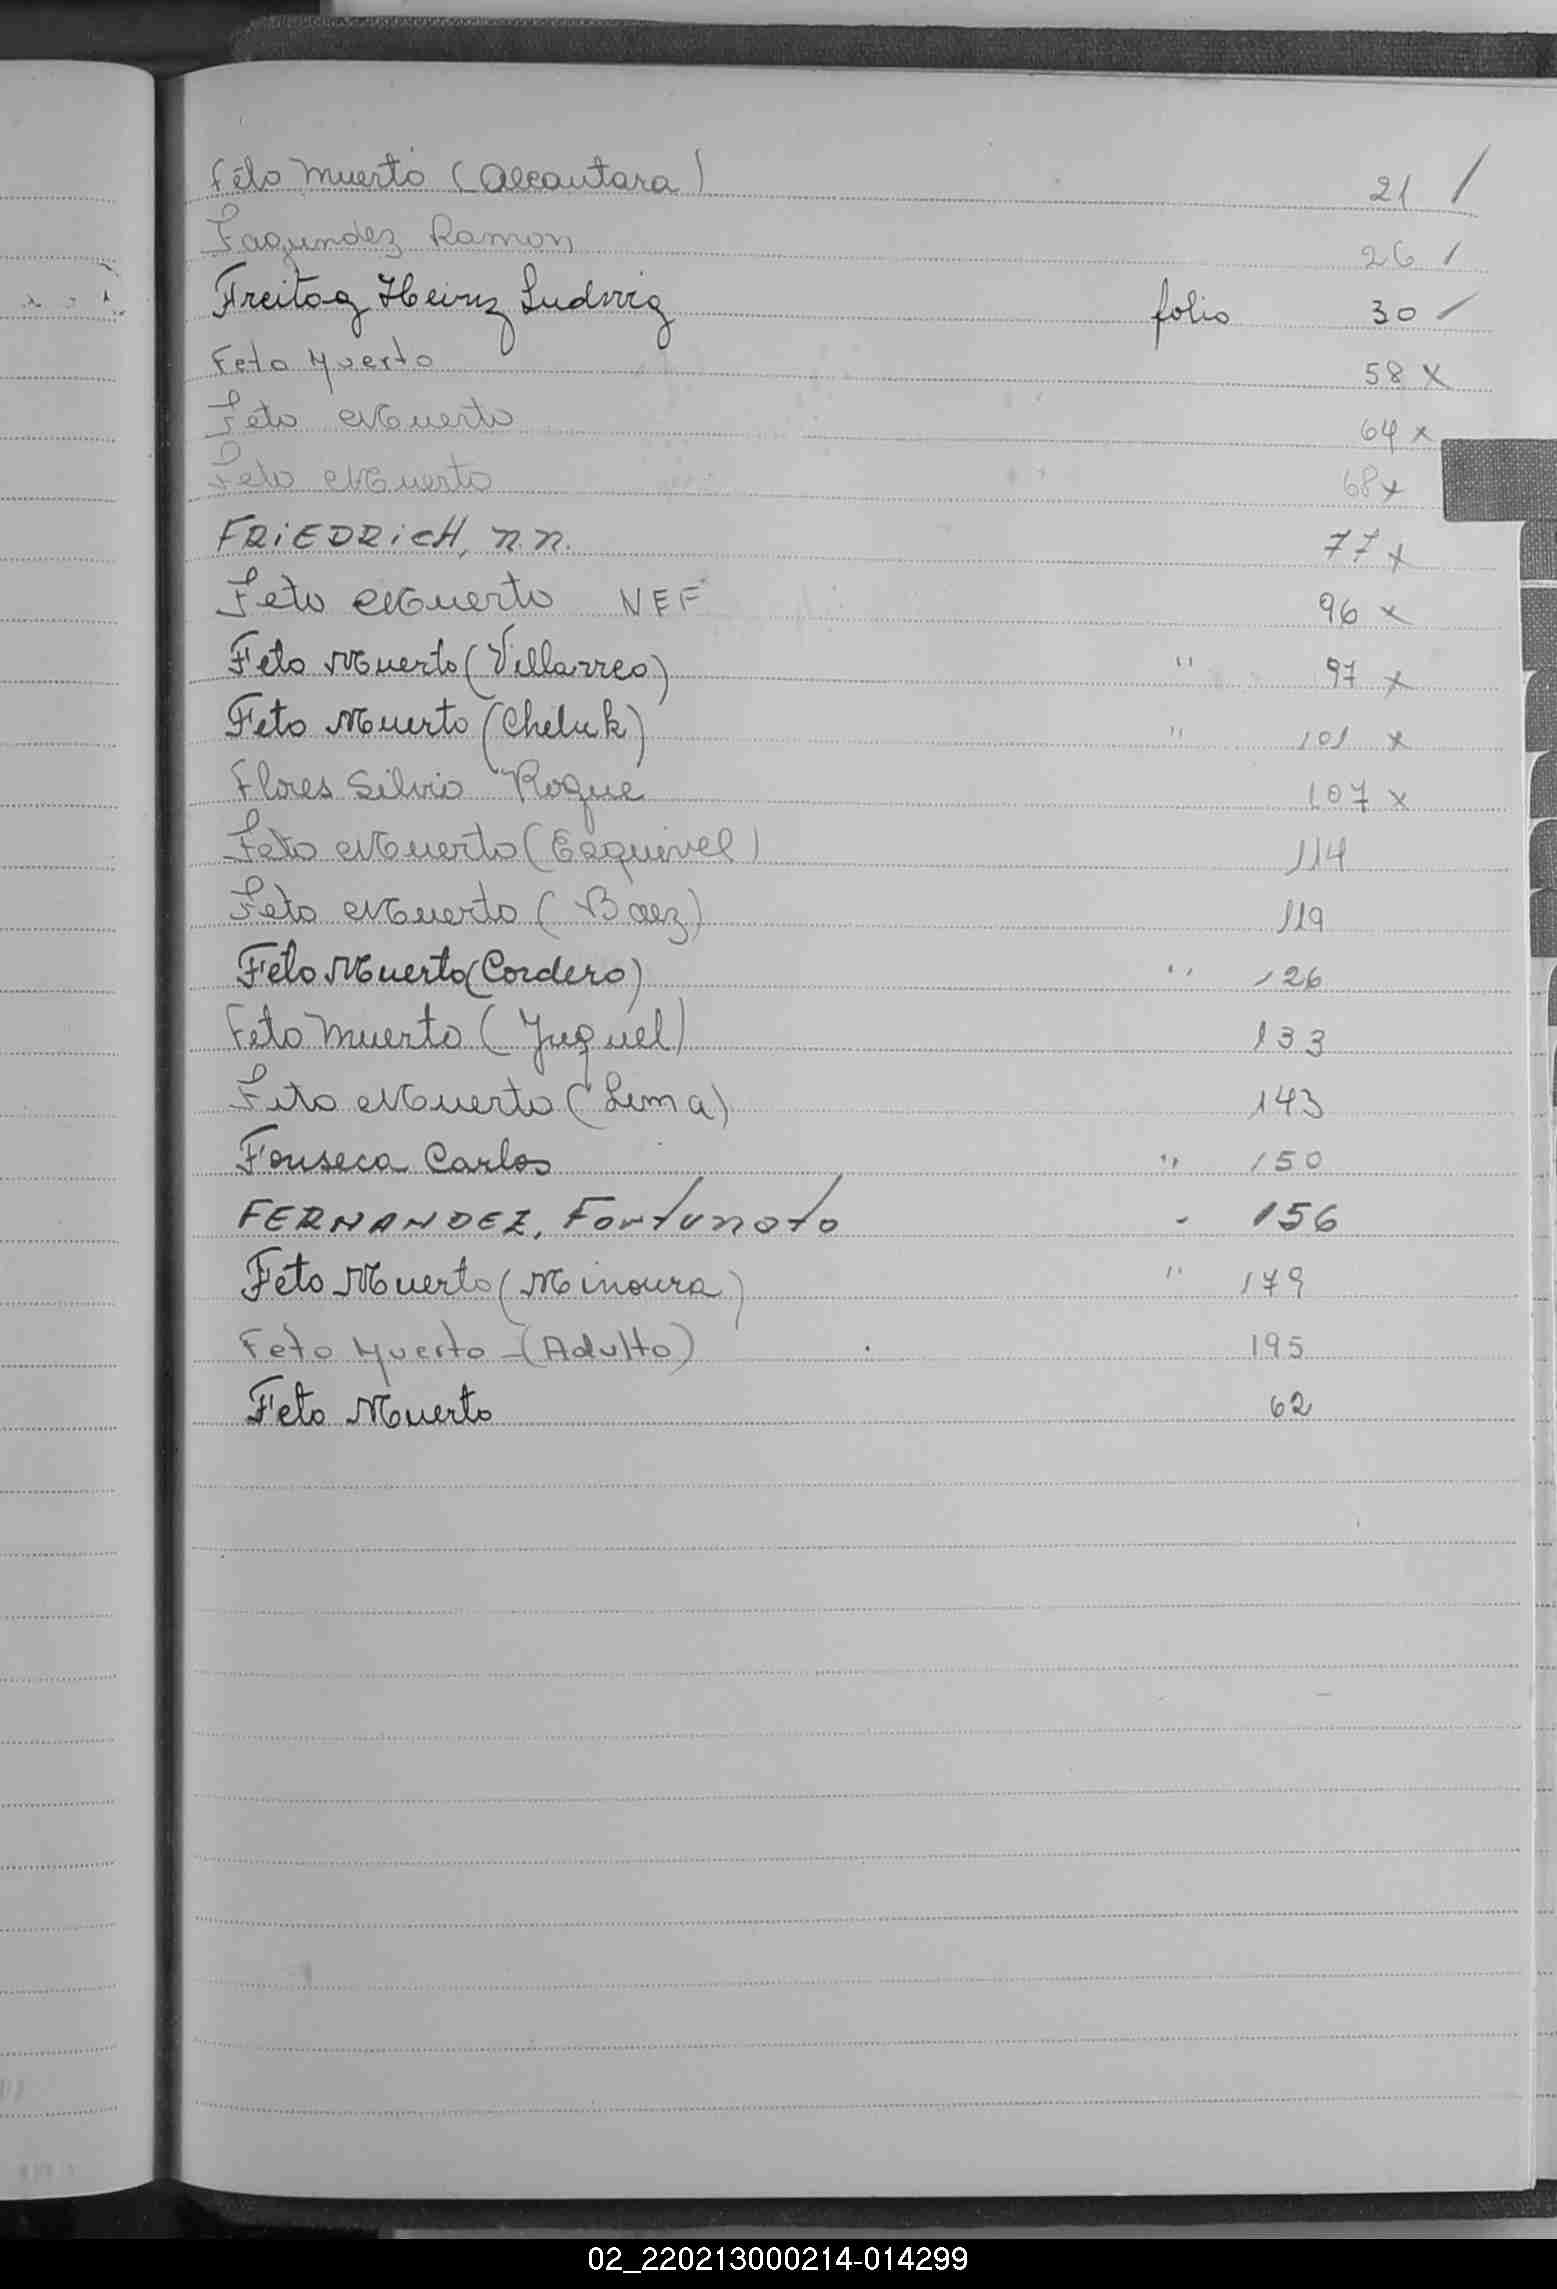 Feto Muerto (Alcantara) 21 /
Fagundez Ramon 26 /
Freitag Heinz Ludwig folio 30 /
Feto Muerto 58 x
Feto Muerto 64 x
Feto Muerto 68 x
FRIEDRICH, n.n. 77 x
Feto Muerto NEF 96 x
Feto Muerto (Villarreo) " 97 x
Feto Muerto (Cheluk) " 101 x
Flores Silvio Roque 107 x
Feto Muerto (Esquivel) 114
Feto Muerto (Baez) 119
Feto Muerto (Cordero) " 126
Feto Muerto (Yuquel) 133
Feto Muerto (Lema) 143
Fonseca Carlos " 150
FERNANDEZ, Fortunato - 156
Feto Muerto (Minoura) " 179
Feto Muerto - (Adulto) 195
Feto Muerto 62
02_220213000214-014299